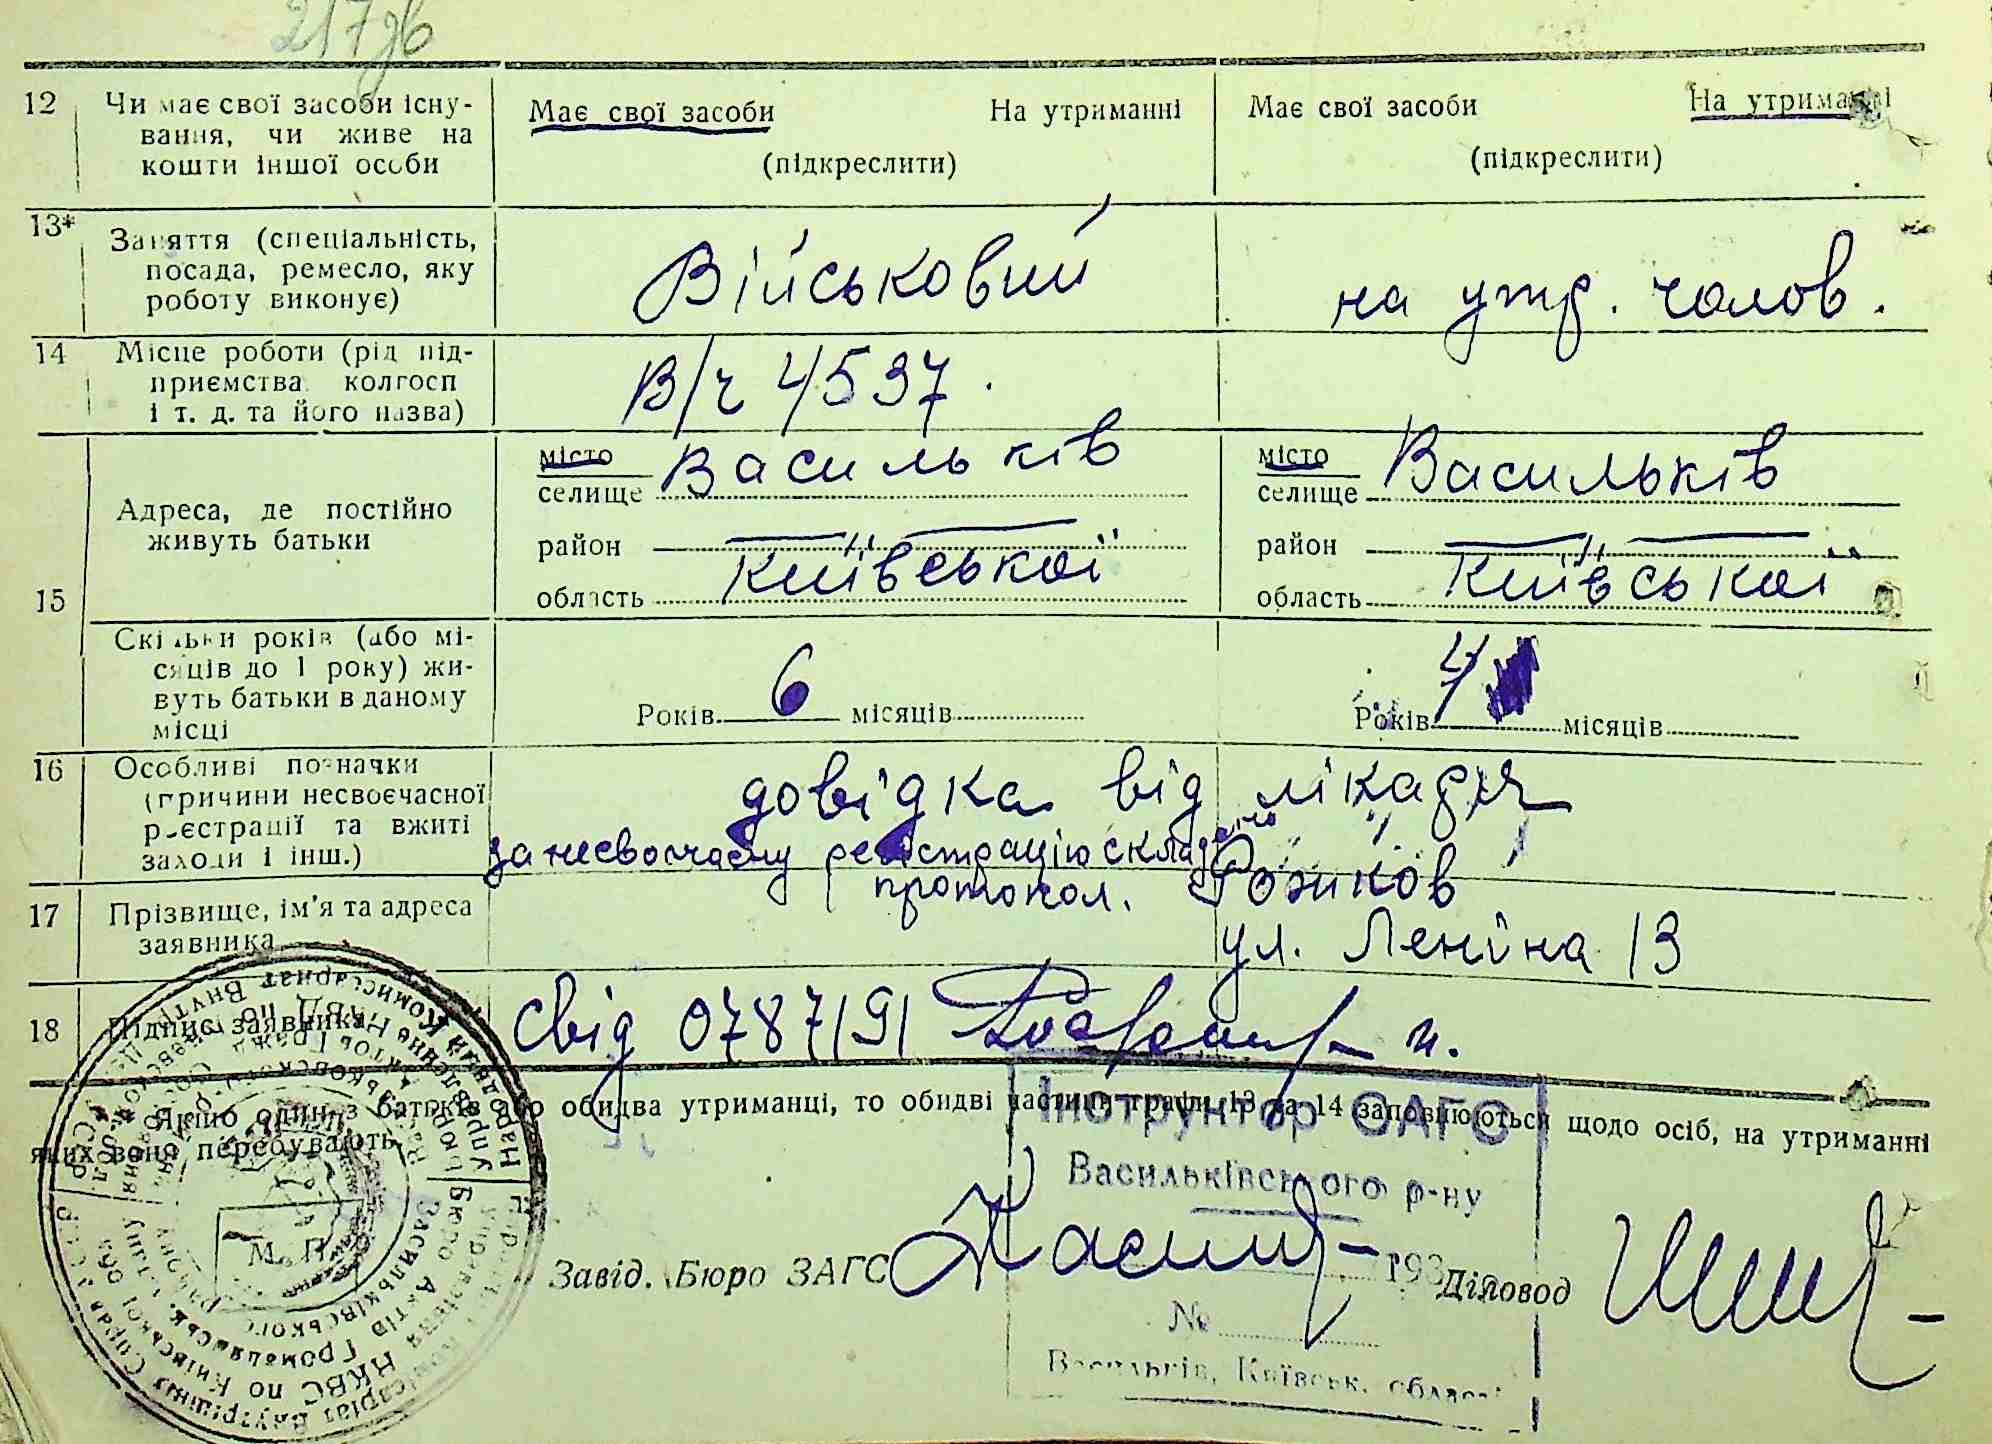 217зв
12 Чи має свої засоби існу-
вання, чи живе на
кошти іншої особи
Має свої засоби На утриманні
(підкреслити)
Має свої засоби На утриманні
(підкреслити)
13* Заняття (спеціальність,
посада, ремесло, яку
роботу виконує)
Військовий
на утр. чолов.
14 Місце роботи (рід під-
приємства колгосп
і т. д. та його назва)
В/ч 4537.
15 Адреса, де постійно
живуть батьки
місто Васильків
селище
район
область Київської
місто Васильків
селище
район
область Київської
Скільки років (або мі-
сяців до 1 року) жи-
вуть батьки в даному
місці
Років 6 місяців
Років 4 місяців
16 Особливі позначки
(причини несвоєчасної
реєстрації та вжиті
заходи і інш.)
довідка від лікаря
за несвоєчасну реєстрацію складено
протокол.
17 Прізвище, ім'я та адреса
заявника
Рожков
ул. Леніна 13
18 Підпис заявника
Свід 078719
Якщо один з батьків або обидва утриманці, то обидві частини графи 13 та 14 заповнюються щодо осіб, на утриманні
яких вони перебувають.
Інструктор ОАГС
Васильківського р-ну
193
№
Васильків, Київськ. област
М. П.
Завід. Бюро ЗАГС
Діловод